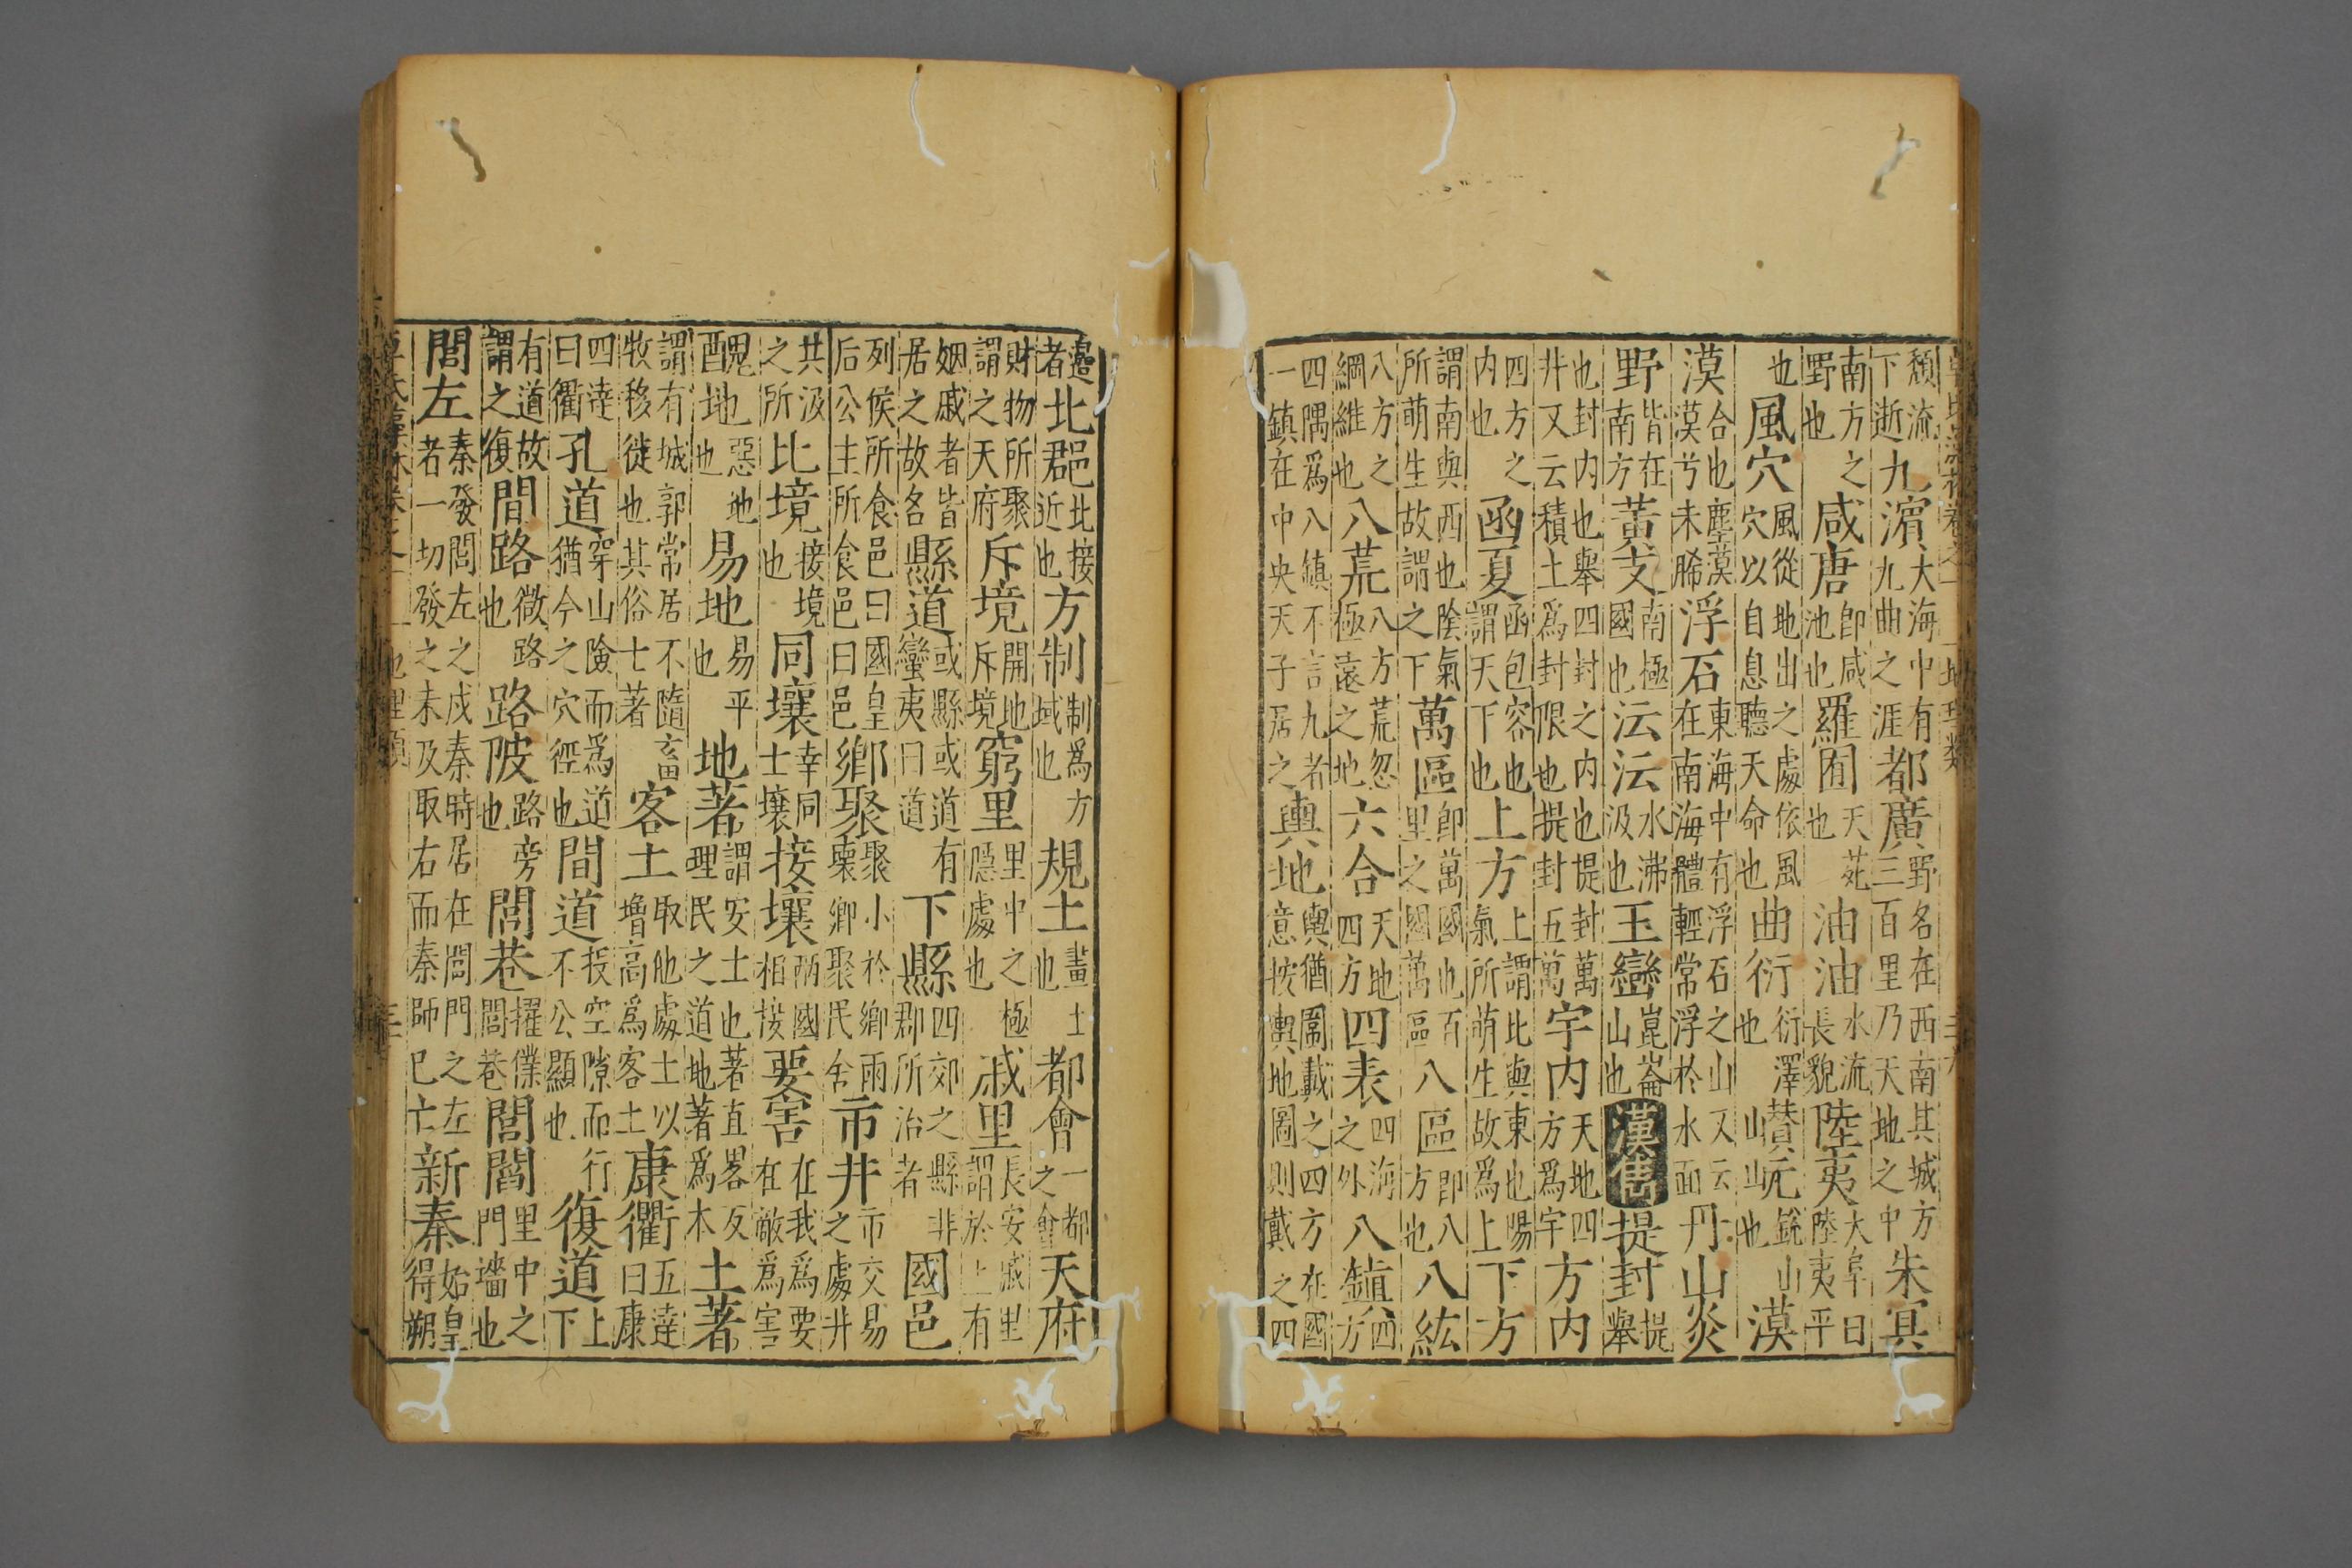 頹流下逝九濵大海中有九曲之涯都廣野名在西南其城方三百里乃天地之中朱冥
南方之野也咸唐卽咸池也羅囿天苑也油油水流長貌陸夷大阜曰陸夷平
也風穴風從地出之處依風穴以自息聽天命也曲衍衍澤也巑岏銳山也漠
漠合也塵漠漠兮未晞浮石東海中有浮石之山又云在南海體輕常浮於水面丹山炎
野皆在南方黃支南極國也沄沄水沸汲也玉巒崑崙山也漢雋提封提舉
也封内也舉四封之内也提封萬井又云積土爲封限也提封五萬宇内天地四方爲宇方内
四方之内也函夏函包容也謂天下也上方上謂比與東也陽氣所萌生故爲上下方
謂南與西也陰氣所萌生故謂之下萬區卽萬國也百里之國萬區八區卽八方也八紘
八方之綱維也八荒八方荒忽極遠之地六合天地四方四表四海之外八鎮四方
四隅爲八鎮不言九者一鎮在中央天子居之輿地輿猶圖載之四方在國意按輿地圖則戴之四
邊者北郡北接近也方制制爲方域也規土畫土也都會一都之會天府
財物所聚謂之天府斥境開地斥境窮里里中之極隱處也戚里長安戚里謂於上有
姻戚者皆居之故名縣道或縣或道有蠻夷曰道下縣四郊之縣非郡所治者國邑
列侯所食邑曰國皇后公主所食邑曰邑鄉聚聚小於鄉兩壞鄉聚民舍市井市交易之處井
共汲之所比境接境也同壤幸同士壤接壤兩國相接要害在我爲要在敵爲害
醜地惡地也易地易平也地著謂安土也著直畧反理民之道地著爲木土著
謂有城郭常居不隨畜牧移徙也其俗士著客土取他處土以增高爲客土康衢五逵曰康
四逵曰衢孔道穿山險而爲道猶今之穴徑也間道投空隙而行不公顯也復道上下
有道故謂之復間路微路也路陂路旁也閭巷擢僕閭巷閭閻里中之門墻也
閭左秦發閭左之戍秦時居在閭門之左者一切發之未及取右而秦師已亡新秦始皇得朔